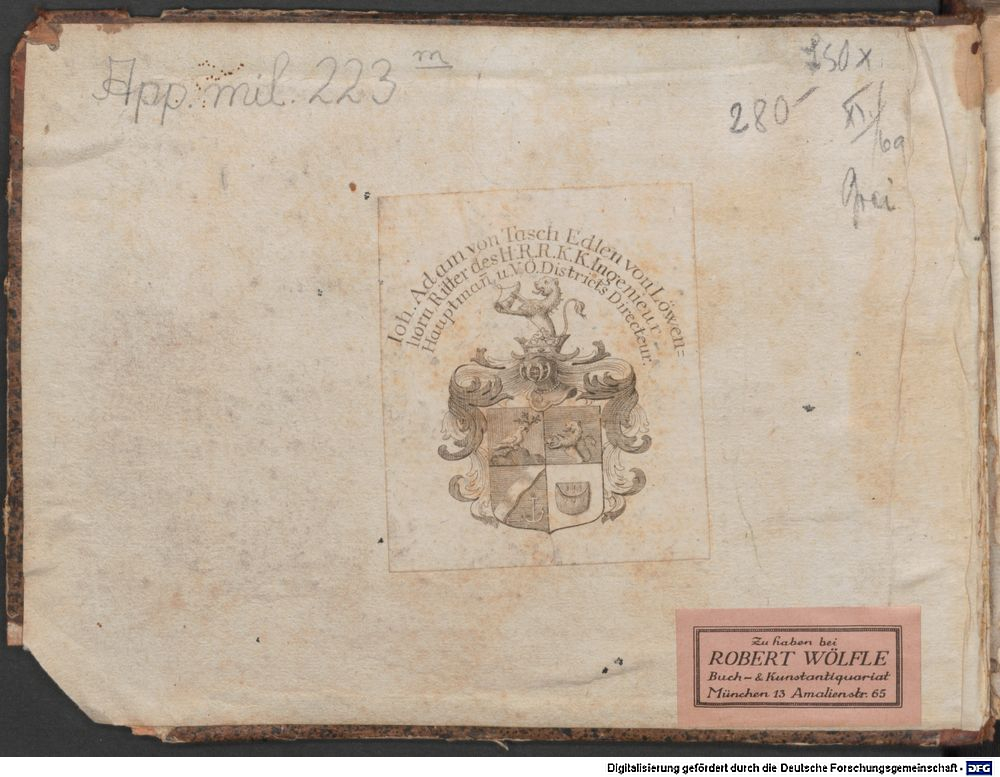 App. mil. 223 m
280
XI./69
Joh. Adam von Tasch Edlen von Löwen=
horn Ritter des H. R. R. K. K. Ingenieur
Hauptman̄, u. V. Ö. Districts Directeur.
Zu haben bei
ROBERT WÖLFLE
Buch- & Kunstantiquariat
München 13 Amalienstr. 65
Digitalisierung gefördert durch die Deutsche Forschungsgemeinschaft - DFG